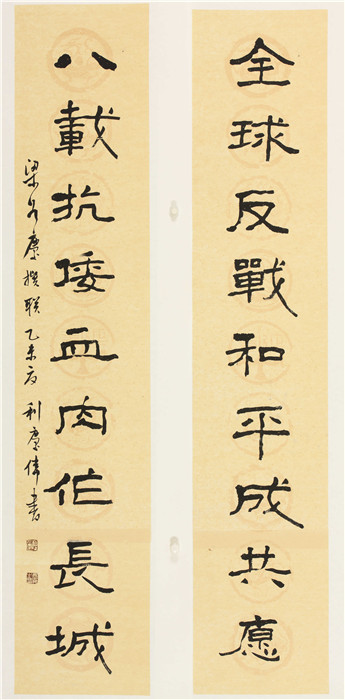 全球反戰和平成共愿
八載抗倭血肉作長城
梁冬康撰联乙未夏利康伟書